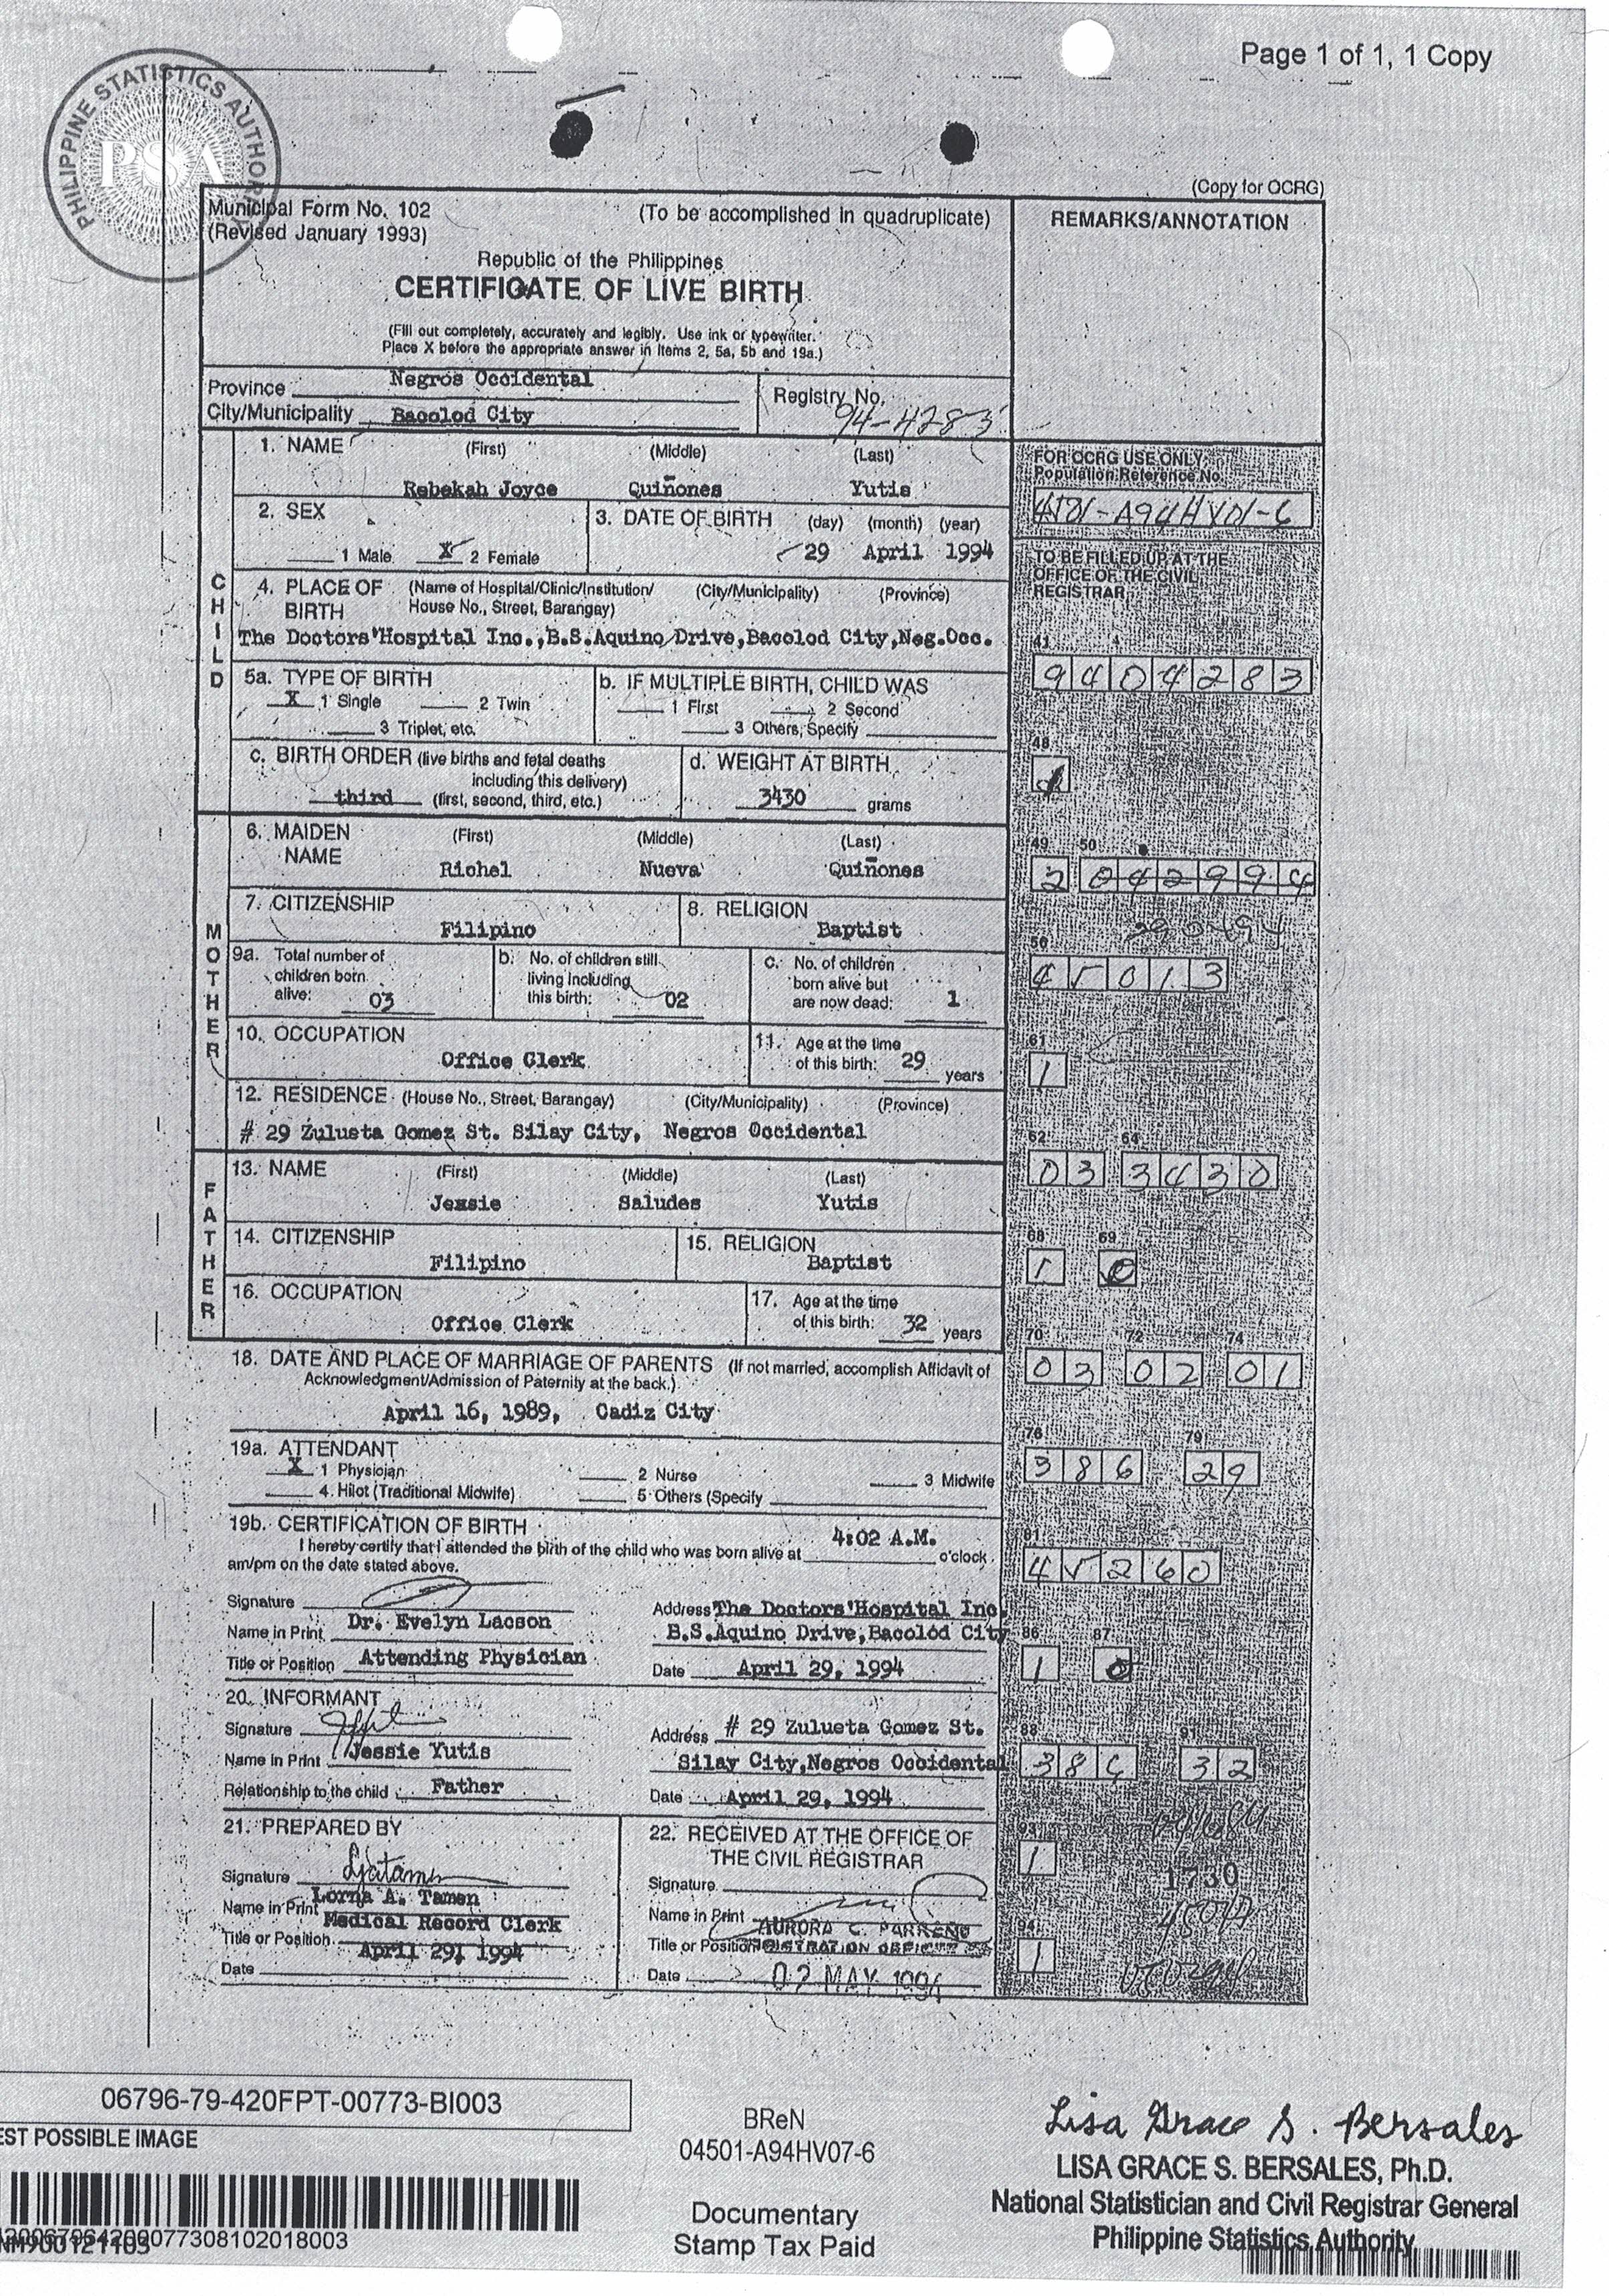 Page 1 of 1, 1 Copy
PHILIPPINE STATISTICS AUTHORITY
PSA
(Copy for OCRG)
Municipal Form No. 102
(To be accomplished in quadruplicate)
(Revised January 1993)
Republic of the Philippines
CERTIFICATE OF LIVE BIRTH
(Fill out completely, accurately and legibly. Use ink or typewriter.
Place X before the appropriate answer in Items 2, 5a, 5b and 19a.)
REMARKS/ANNOTATION
Province Negros Occidental
City/Municipality Bacolod City
Registry No. 94-4283
CHILD
1. NAME (First) (Middle) (Last)
Rebekah Joyce Quiñones Yutis
2. SEX
1 Male X 2 Female
3. DATE OF BIRTH (day) (month) (year)
29 April 1994
4. PLACE OF BIRTH (Name of Hospital/Clinic/Institution/ House No., Street, Barangay) (City/Municipality) (Province)
The Doctors'Hospital Inc.,B.S.Aquino Drive,Bacolod City,Neg.Occ.
5a. TYPE OF BIRTH
X 1 Single 2 Twin
3 Triplet, etc.
b. IF MULTIPLE BIRTH, CHILD WAS
1 First 2 Second
3 Others, Specify
c. BIRTH ORDER (live births and fetal deaths
including this delivery)
third (first, second, third, etc.)
d. WEIGHT AT BIRTH
3430 grams
MOTHER
6. MAIDEN NAME (First) (Middle) (Last)
Richel Nueva Quiñones
7. CITIZENSHIP
Filipino
8. RELIGION
Baptist
9a. Total number of children born alive: 03
b. No. of children still living including this birth: 02
c. No. of children born alive but are now dead: 1
10. OCCUPATION
Office Clerk
11. Age at the time of this birth: 29 years
12. RESIDENCE (House No., Street, Barangay) (City/Municipality) (Province)
# 29 Zulueta Gomez St. Silay City, Negros Occidental
FATHER
13. NAME (First) (Middle) (Last)
Jessie Saludes Yutis
14. CITIZENSHIP
Filipino
15. RELIGION
Baptist
16. OCCUPATION
Office Clerk
17. Age at the time of this birth: 32 years
18. DATE AND PLACE OF MARRIAGE OF PARENTS (If not married, accomplish Affidavit of
Acknowledgment/Admission of Paternity at the back.)
April 16, 1989, Cadiz City
19a. ATTENDANT
X 1 Physician 2 Nurse 3 Midwife
4 Hilot (Traditional Midwife) 5 Others (Specify
19b. CERTIFICATION OF BIRTH
I hereby certify that I attended the birth of the child who was born alive at 4:02 A.M. o'clock
am/pm on the date stated above.
Signature
Name in Print Dr. Evelyn Lacson
Title or Position Attending Physician
Address The Doctors'Hospital Inc.
B.S.Aquino Drive,Bacolod City
Date April 29, 1994
20. INFORMANT
Signature
Name in Print Jessie Yutis
Relationship to the child Father
Address # 29 Zulueta Gomez St.
Silay City,Negros Occidental
Date April 29, 1994
21. PREPARED BY
Signature
Name in Print Lorna A. Tamen
Medical Record Clerk
Title or Position
April 29, 1994
Date
22. RECEIVED AT THE OFFICE OF
THE CIVIL REGISTRAR
Signature
Name in Print AURORA C. PARRENO
Title or Position REGISTRATION OFFICER
Date 02 MAY 1994
FOR OCRG USE ONLY:
Population Reference No.
TO BE FILLED UP AT THE
OFFICE OF THE CIVIL
REGISTRAR
41
9404283
48
49 50
2 042994
290494
56
45013
61
1
62 64
03 3430
68 69
70 72 74
03 02 01
76 79
386 29
81
86 87
1 0
88 91
32
93
1
1730
94
1
06796-79-420FPT-00773-BI003
EST POSSIBLE IMAGE
BReN
04501-A94HV07-6
Documentary
Stamp Tax Paid
Lisa Grace S. Bersales
LISA GRACE S. BERSALES, Ph.D.
National Statistician and Civil Registrar General
Philippine Statistics Authority